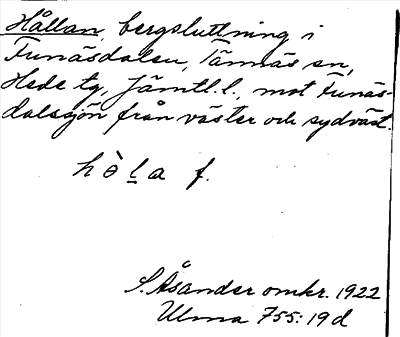 Hållan, bergsluttning i
Funäsdalen, Tännäs sn,
Hede tg, Jämtl. l., mot Funäs-
dalssjön från väster och sydväst.
hòl̠a f.
S. Åsander omkr. 1922
Ulma 755:19d